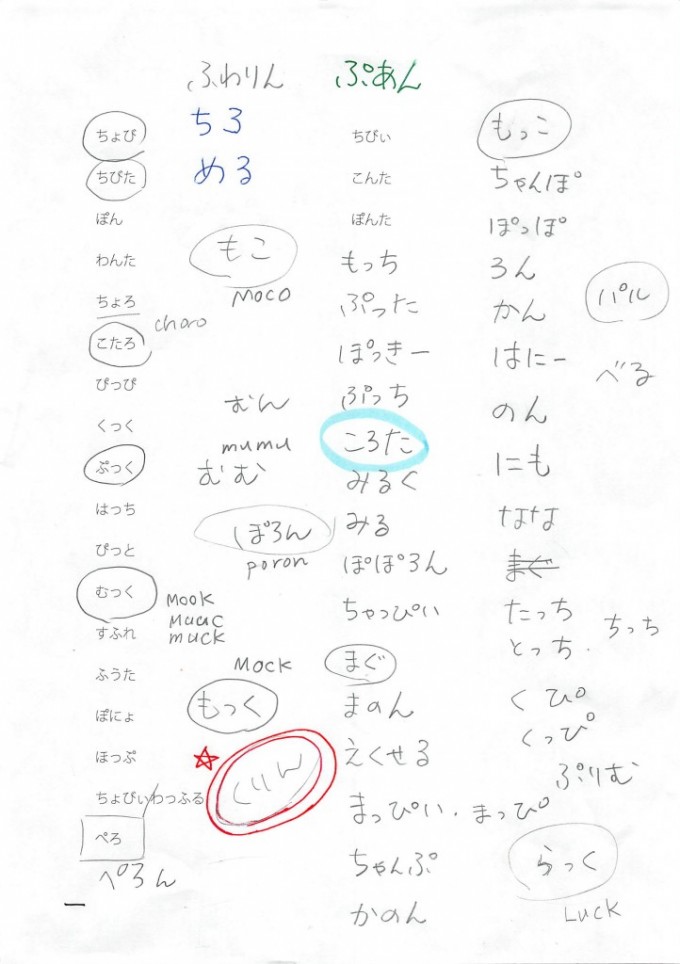 ふわりん
ぷあん
ちょび
ちびた
ぽん
わんた
ちょろ
choro
こたろ
ぴっぴ
くっく
ぷっく
はっち
ぴっと
むっく
MOOK
MUUC
MUCK
すふれ
ふうた
ぽにょ
ほっぷ
ちょびぃ/わっふる
ぺろ
ぺろん
ちろ
める
もこ
MOCO
むん
mumu
むむ
ぽろん
poron
MOCK
もっく
くりん
ちびぃ
こんた
ぽんた
もっち
ぷった
ぽっきー
ぷっち
ころた
みるく
みる
ぽぽろん
ちゃっぴぃ
まぐ
まのん
えくせる
まっぴぃ・まっぴ
ちゃんぷ
かのん
もっこ
ちゃんぽ
ぽっぽ
ろん
かん
はにー
のん
にも
なな
まぐ
たっち
とっち・ちっち
くぴ
くっぴ
ぷりむ
らっく
LUCK
パル
べる